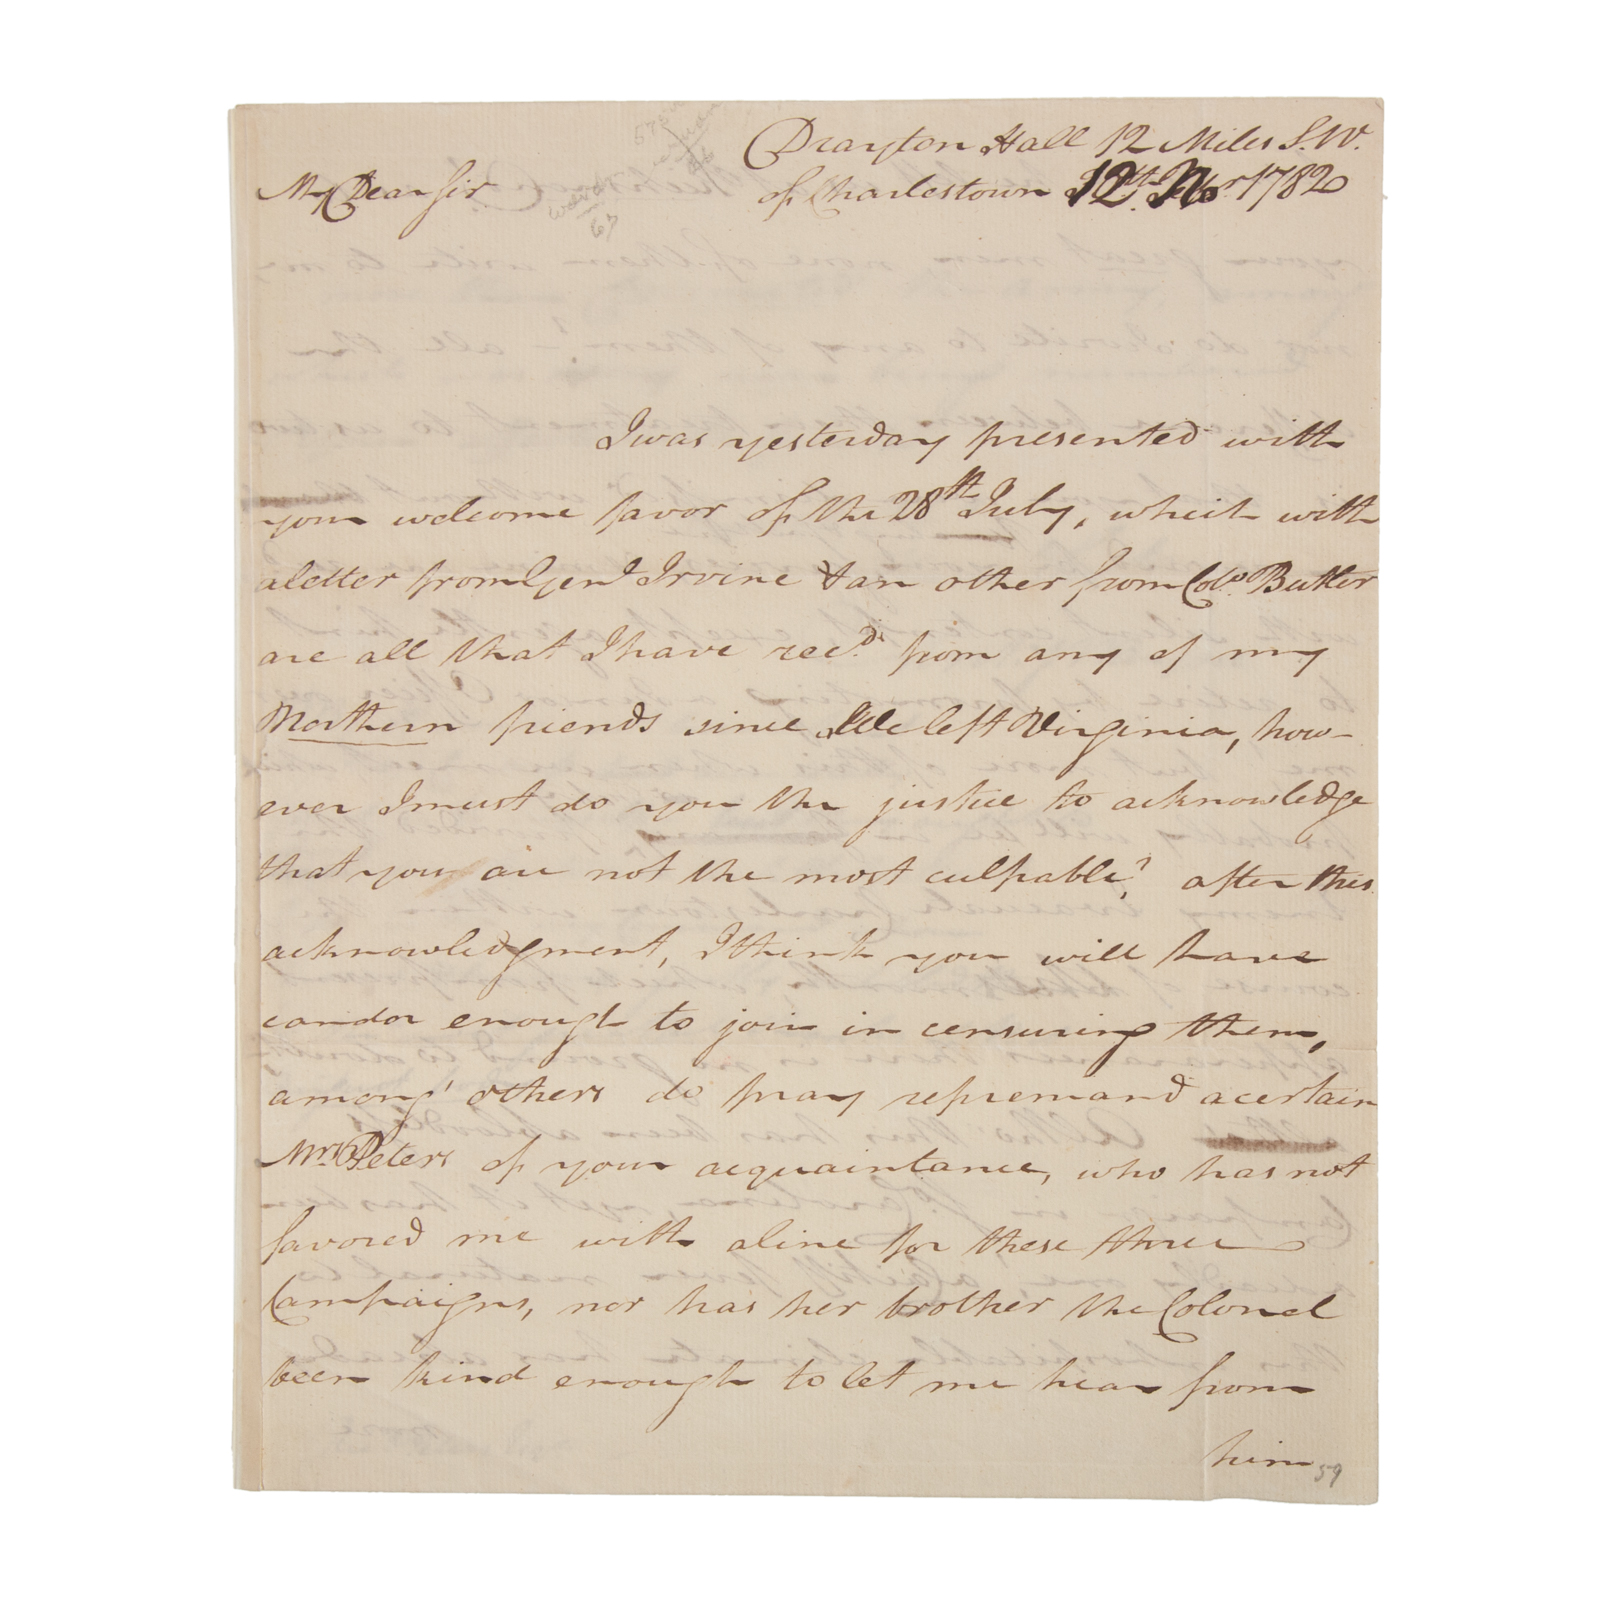 Drayton Hall 12 Miles S.W.
of Charlestown 12th. Nor. 1782
My Dear Sir
I was yesterday presented with
your welcome favor of the 28th July, which with
a letter from Genl Irvine & an other from Colo. Butler
are all that I have recd. from any of my
Northern friends since We left Virginia, how-
ever I must do you the justice to acknowledge
that you are not the most culpable? after this
acknowledgment, I think you will have
candor enough to join in censuring them,
among' others do pray repremand a certain
Mrs. Peters of your acquaintance, who has not
favored me with a line for these three
Campaigns, nor has her brother the Colonel
been kind enough to let me hear from
him
59